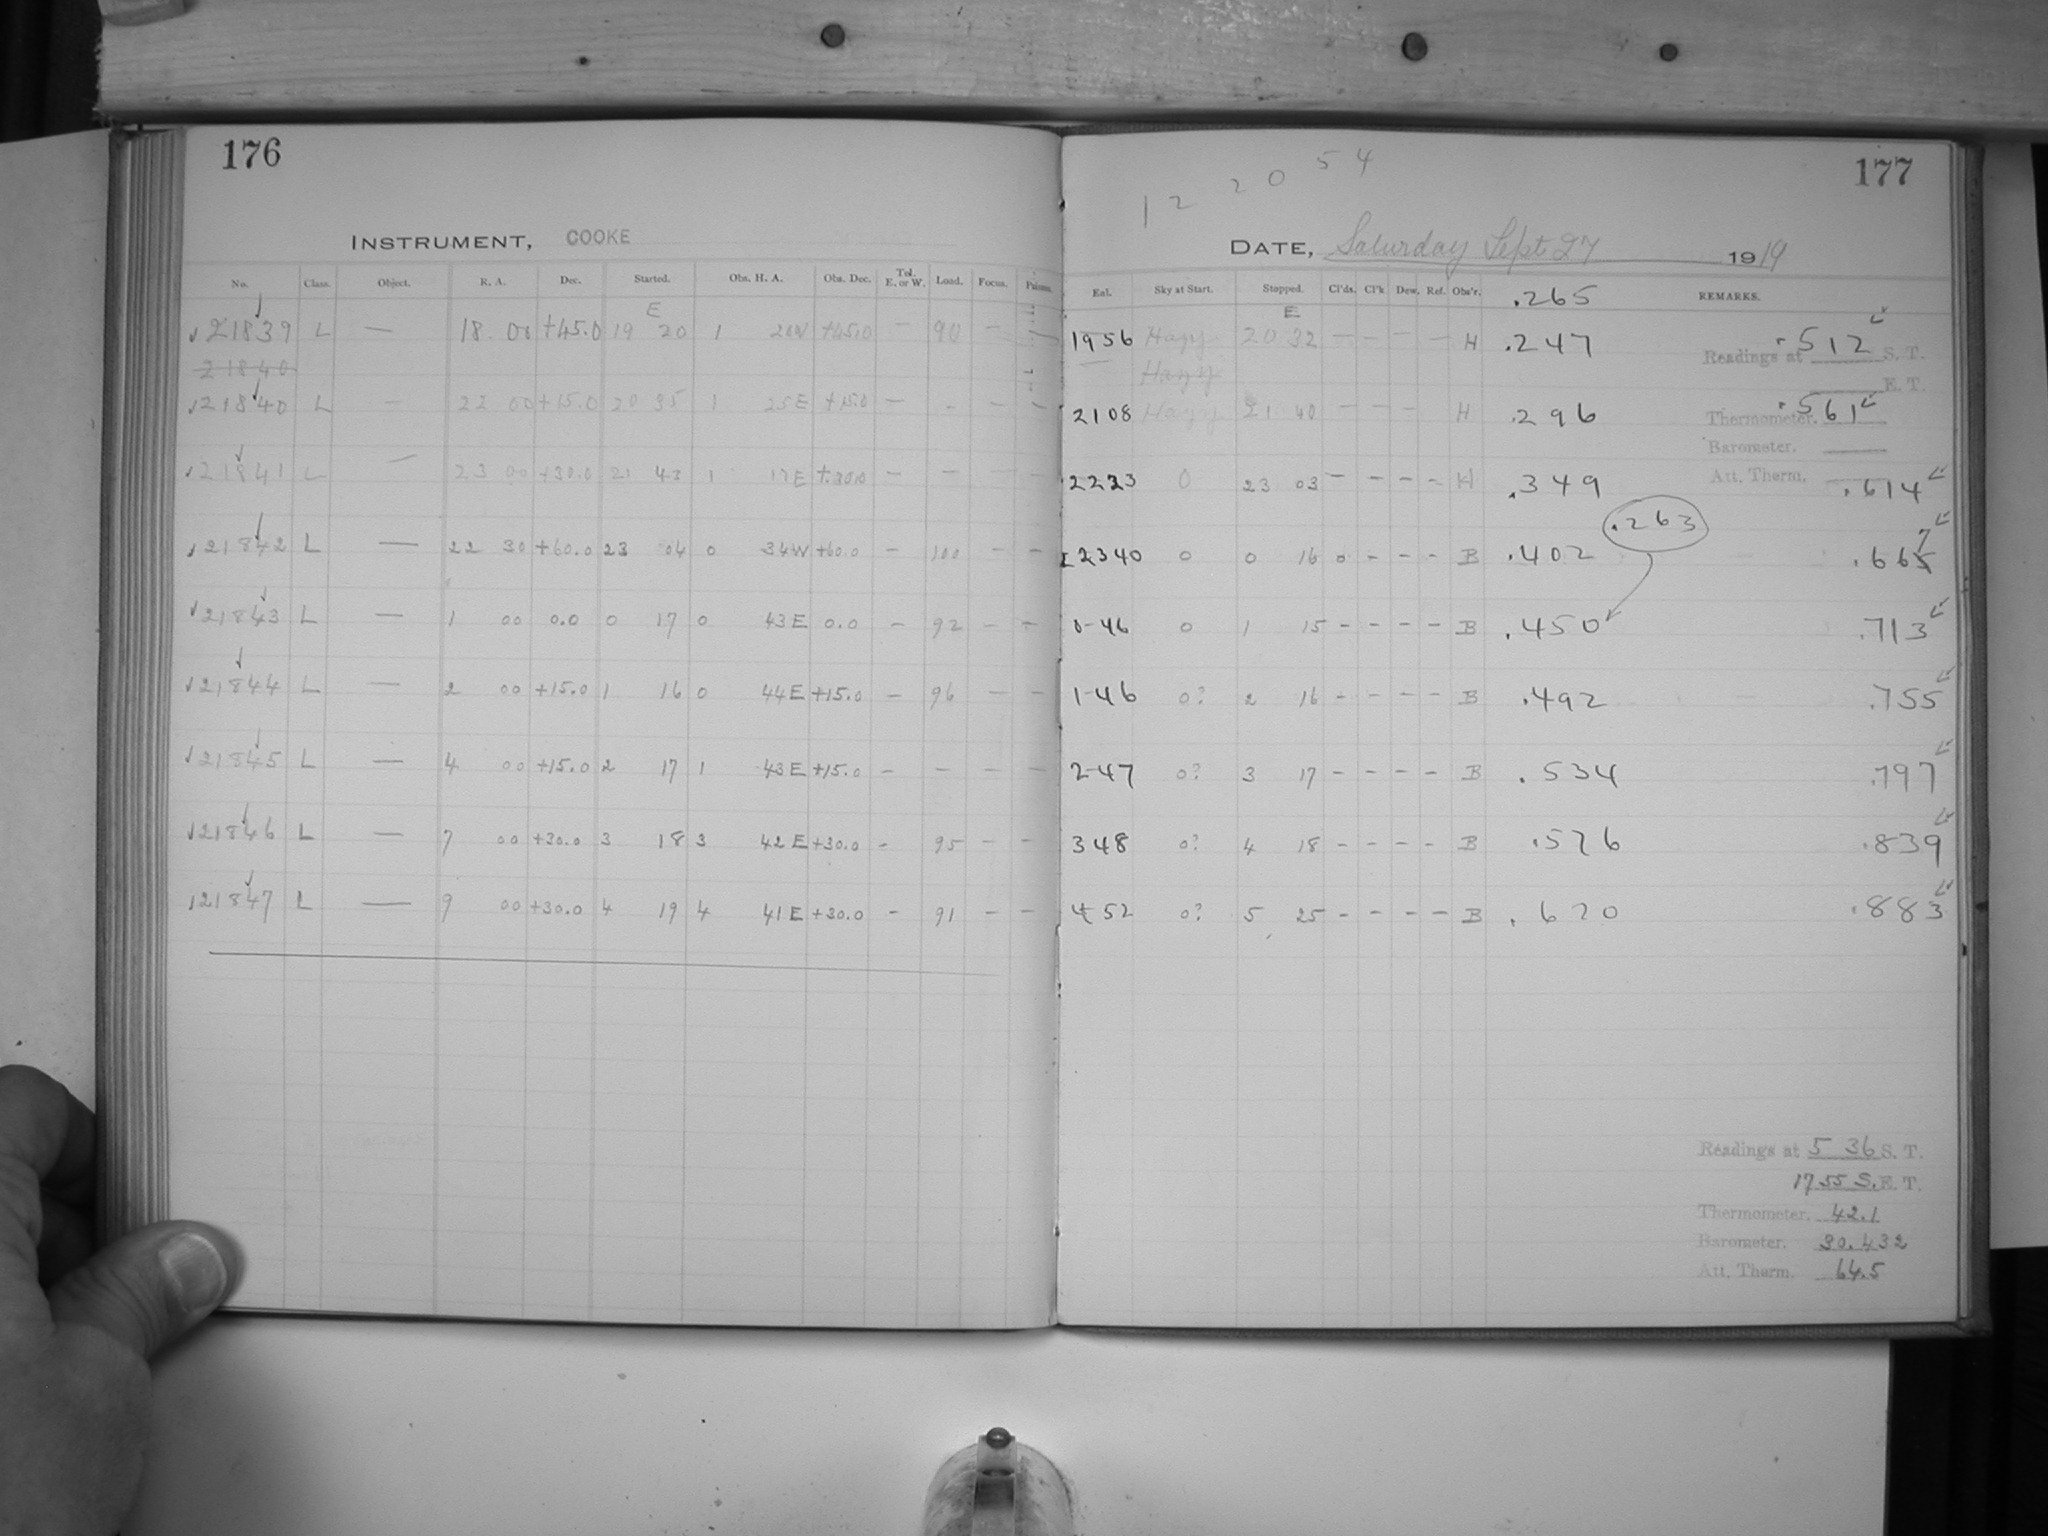 176
INSTRUMENT, COOKE
No. Class. Object. R. A. Dec. Started. Obs. H. A. Obs. Dec. Tel. E. or W. Load. Focus.
E
21839 L — 18 00 +45.0 19 20 1 20W +45.0 — 90 —
21840
21840 L — 22 00 +15.0 20 35 1 25E +15.0 — - — —
21841 L — 23 00 +30.0 21 43 1 17E +30.0 — — — —
21842 L — 22 30 +60.0 23 04 0 34W +60.0 — 100 — —
21843 L — 1 00 0.0 0 17 0 43E 0.0 — 92 — —
21844 L — 2 00 +15.0 1 16 0 44E +15.0 — 96 — —
21845 L — 4 00 +15.0 2 17 1 43E +15.0 — — — —
21846 L — 7 00 +30.0 3 18 3 42E +30.0 - 95 — —
21847 L — 9 00 +30.0 4 19 4 41E +30.0 - 91 — —
177
12 20 54
DATE, Saturday Sept. 27 1919
Sky at Start. Stopped. Cl'ds. Cl'k Dew. Ref. Obs'r. .265 REMARKS.
E
1956 Hazy 20 32 — — — — H .247 .512
Readings at S. T.
Hazy
E. T.
2108 Hazy 21 40 — — — H .296 .561
Thermometer.
Barometer.
Att. Therm.
2223 0 23 03 — — — — H .349 .614
.263
2340 0 0 16 0 - - - B .402 .667
0-46 0 1 15 - - - - B .450 .713
1-46 0? 2 16 - - - - B .492 .755
2-47 0? 3 17 - - - - B .534 .797
348 0? 4 18 - - - - B .576 .839
452 0? 5 25 - - - - B .620 .883
Readings at 5 36 S. T.
17 55 S. E. T.
Thermometer. 42.1
Barometer. 30.432
Att. Therm. 64.5